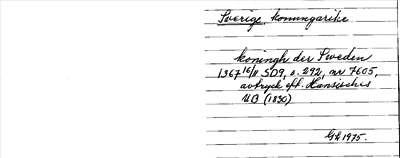 Sverige, konungarike
koningh der Sweden
1367 16/11 SD9, s. 292, nr 7605,
avtryck eft. Hansisches
UB (1830)
GH 1975.